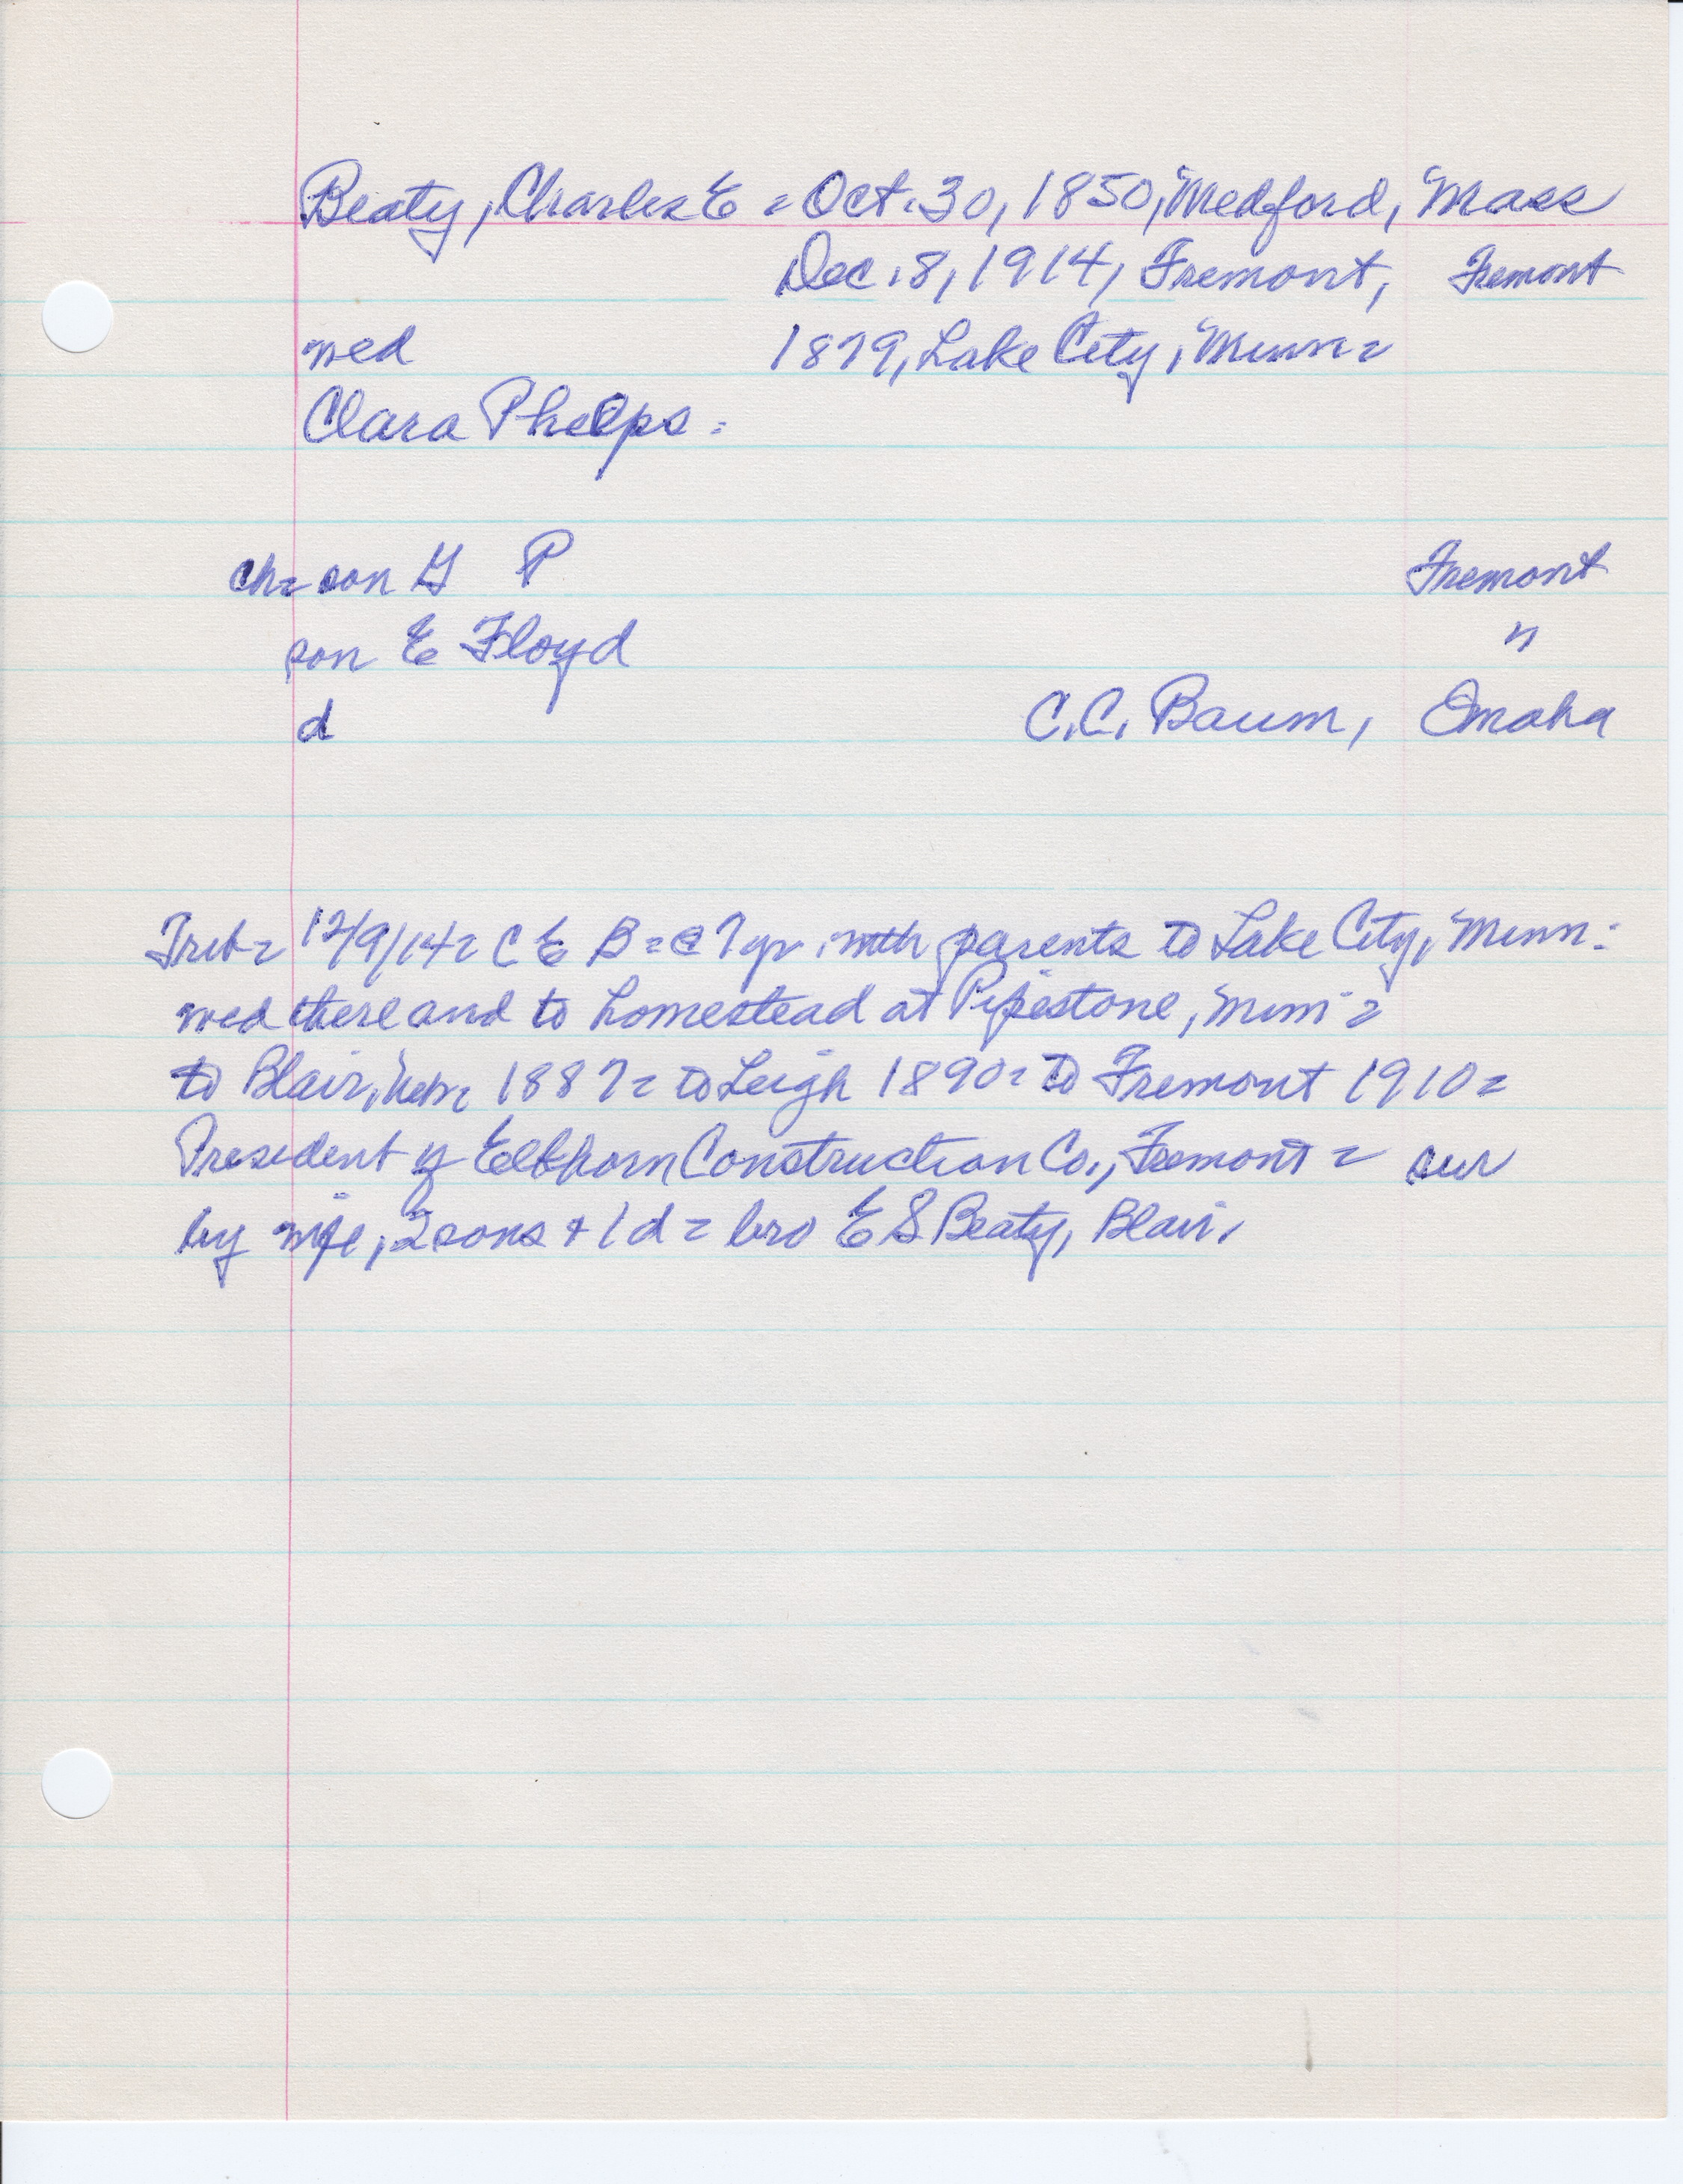 Beaty, Charles E = Oct. 30, 1850, Medford, Mass
Dec. 8, 1914, Fremont, Fremont
wed 1879, Lake City, Minn =
Clara Phelps =
ch = son G P Fremont
son E Floyd "
d C.C. Baum, Omaha
Trib = 12/9/14 = C E B = @ 7 yr. with parents to Lake City, Minn =
wed there and to homestead at Pipestone, Minn =
to Blair, Neb = 1887 = to Leigh 1890 = to Fremont 1910 =
President of Elkhorn Construction Co., Fremont = sur
by wife, 2 sons + 1 d = bro E S Beaty, Blair.